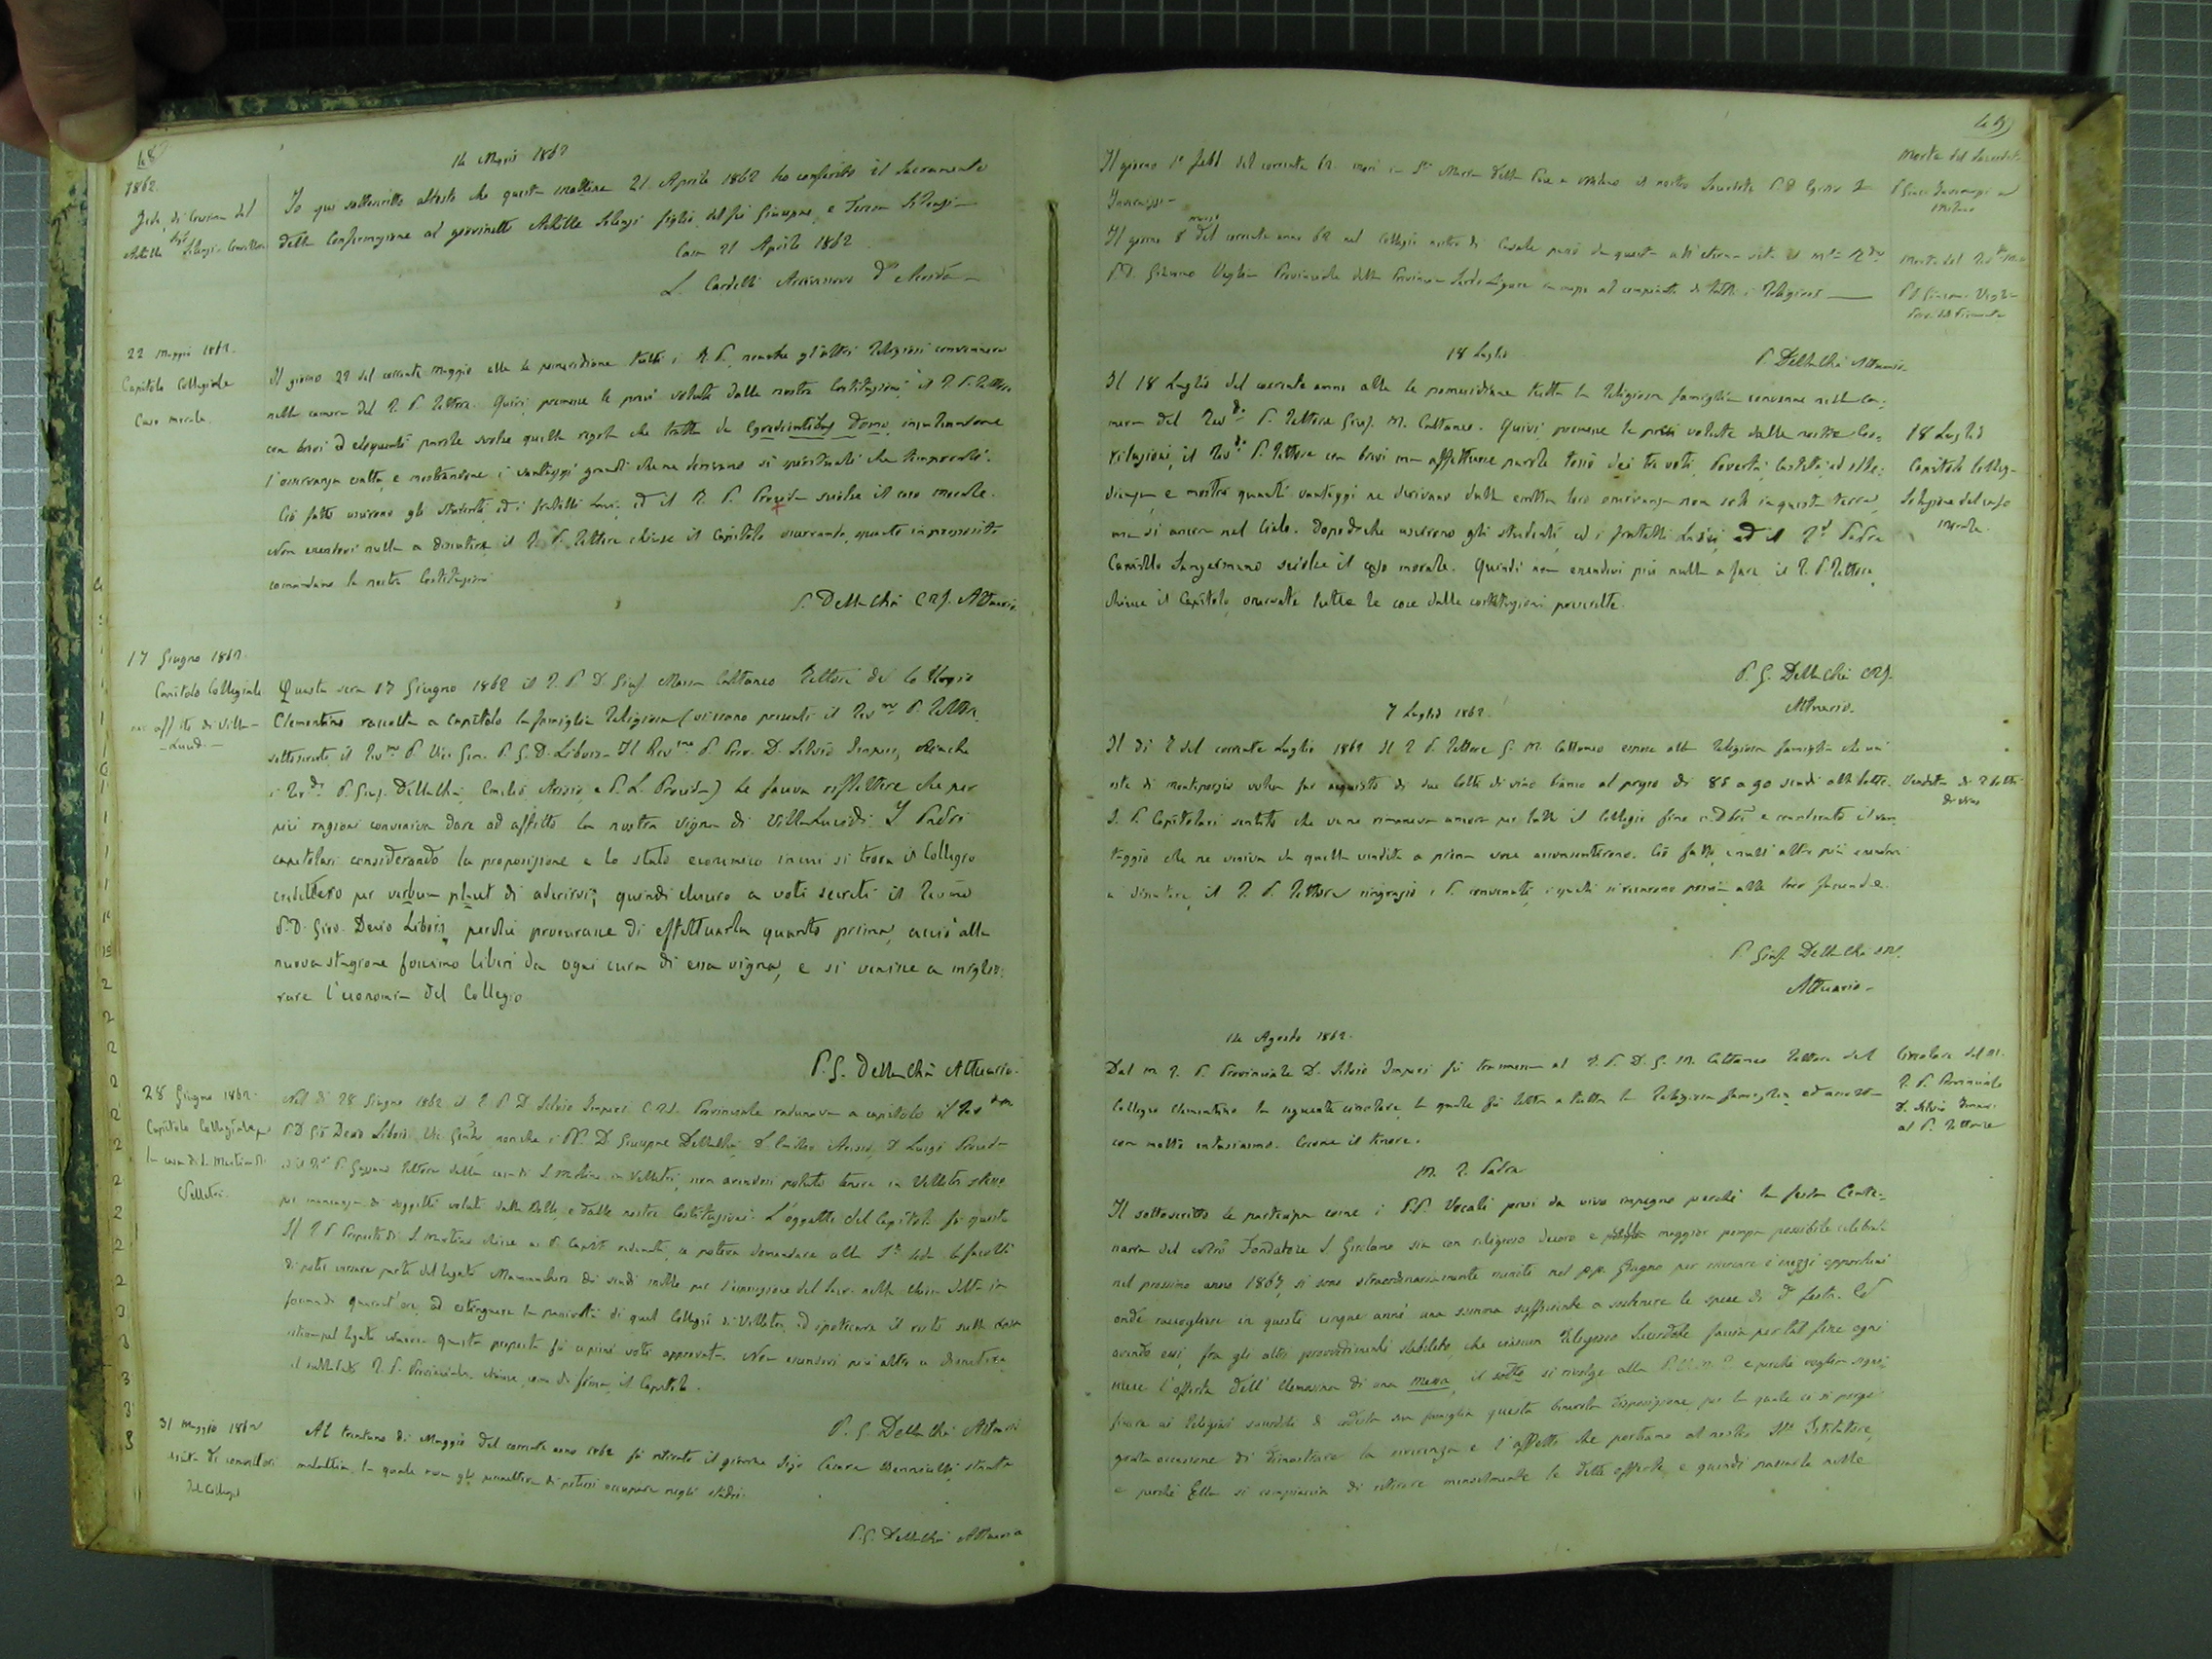 48
14 Maggio 1862
1862.
Fede di Cresima del
Achille Silenzi Convittore
Io qui sottoscritto attesto che questa mattina 21 Aprile 1862 ho conferito il Sacramento
della Confermazione al giovinetto Achille Silenzi figlio del fù Giuseppe e Teresa Silenzi
Casa 21 Aprile 1862
L. Cardelli Arcivescovo d'Acrida
22 Maggio 1862.
Capitolo Collegiale
Caso morale.
Il giorno 22 del corrente Maggio alle pomeridiane tutti i R. P. nonche gl'altri Religiosi convennero
nella camera del R. P. Rettore. Quivi premesse le preci volute dalle nostre Costituzioni, il R. P. Rettore
con brevi ed eloquenti parole svolse quella regola che tratta de Egredientibus Domo, inculcandone
l'osservanza esatta e mostrandone i vantaggi grandi che ne derivano si spirituali che temporali.
Ciò fatto uscirono gli studenti ed i fratelli Laici, ed il R. P. Procida sciolse il caso morale.
Non essendovi nulla a discutere il R. P. Rettore chiuse il Capitolo osservando quanto in proposito
comandano le nostre Costituzioni
P. DellaChà CRS. Attuario
17 Giugno 1862.
Capitolo Collegiale
affitto di Villa
Lucidi
Questa sera 17 Giugno 1862 il R. P. D. Gius. Maria Cattaneo Rettore del Collegio
Clementino raccolta a Capitolo la famiglia Religiosa (vi erano presenti il Rev.mo P. Rettore
sottoscritto, il Rev.mo P. Vic. Gen. P. G. D. Libois Il Rev.mo P. Prov. D. Silvio Imperi, nonche
i Rev.di P. Gius. DellaChà, Emilio Arisio, e P. L. Procida) Le faceva riflettere che per
più ragioni conveniva dare ad affitto la nostra vigna di VillaLucidi. I Padri
capitolari considerando la proposizione e lo stato economico in cui si trova il Collegio
credettero per verbum placet di aderirvi; quindi elessero a voti secreti il Rev.mo
P. D. Giov. Decio Libois, perché procurasse di effettuarla quanto prima, acciò alla
nuova stagione fossimo liberi da ogni cura di essa vigna, e si venisse a miglio-
rare l'economia del Collegio
P. G. DellaChà Attuario.
28 Giugno 1862.
Capitolo Collegiale per
la casa di S. Martino di
Velletri.
Nel di 28 Giugno 1862 il R. P. D. Silvio Imperi C.R.S. Provinciale radunava a capitolo il Rev.mo
P. D. Gio Decio Libois Vic. Gen.le nonche i PP. D. Giuseppe DellaChà, D. Emilio Arisio, D. Luigi Procida
ed il R. P. Rettore della casa di S. Martino in Velletri, non avendosi potuto tenere in Velletri stesso
per mancanza di soggetti voluti dalle Bolle e dalle nostre Costituzioni. L'oggetto del Capitolo fu questo
Il R. P. Preposto di S. Martino chiese ai P. Capit. radunati, se poteva domandare alla S. Sede la facoltà
di poter versare parte del legato di scudi mille per l'esposizione del Sac. nella chiesa della in
forma di quarant'ore, ad estinguere la passività di quel Collegio di Velletri, ed ipotecare il resto sulla
Questa proposta fù a pieni voti approvata. Non essendovi più altro a discutere
il sullodato R. P. Provinciale chiuse, come di forma, il Capitolo.
P. G. DellaChà Attuario
31 Maggio 1862
uscita di convittori
dal Collegio
Al trentuno di Maggio del corrente anno 1862 fù ritirato il giovine Sig.r Cesare stante
malattia, la quale non gli permetteva di potersi occupare negli studi.
P. G. DellaChà Attuario
49
Il giorno 1° febb. del corrente 62. morì in S.ta Maria della Pace a Milano il nostro Sacerdote P. D.
Invernizzi
Morte del Sacerdote
P. Invernizzi in
Milano
Il giorno 8 marzo del corrente anno 62 nel Collegio nostro di Casale passò da questa all'eterna vita il M.to R.do
P. D. Girolamo Veglia Provinciale della Provincia Sardo Ligure in mezzo al compianto di tutti i Religiosi
Morte del Rev.do
P. D. Girolamo Veglia
P. DellaChà Attuario
18 Luglio
Il 18 Luglio del corrente anno alle pomeridiane tutta la Religiosa famiglia convenne nella ca-
mera del Rev.do P. Rettore Gius. M. Cattaneo. Quivi, premesse le preci volute dalle nostre Cos-
tituzioni, il Rev.do P. Rettore con brevi ma affettuose parole tessò dei tre voti, Povertà, Castità, ed obbe-
dienza e mostrò quanti vantaggi ne derivano dalla esatta loro osservanza non solo in questa terra,
ma si ancora nel Cielo. Dopodiche uscirono gli studenti ed i fratelli Laici, ed il R.do Padre
Camillo Sangermano sciolse il caso morale. Quindi non essendovi più nulla a fare il R. P. Rettore
chiuse il Capitolo, osservate tutte le cose dalle costituzioni prescritte.
18 Luglio
Capitolo Colleg-
Soluzione del caso
morale.
P. G. DellaChà CRS.
Attuario.
7 Luglio 1862.
Il di 7 del corrente Luglio 1862 Il R. P. Rettore G. M. Cattaneo espose alla Religiosa famiglia che un
oste di Monteporzio voleva far acquisto di due botti di vino bianco al prezzo di 85 a 90 scudi alla botte.
I. P. Capitolari sentito che ve ne rimaneva ancora per tutto il Collegio fino a e considerato il van-
taggio che ne veniva da quella vendita a piena voce acconsentirono. Ciò fatto, e null'altro più essendovi
a discutere, il R. P. Rettore ringraziò i P. convenuti, i quali si recarono poscia alle loro faccende.
Vendita di 2 botti
di vino
P. Gius. DellaChà CRS.
Attuario.
14 Agosto 1862.
Dal M. R. P. Provinciale D. Silvio Imperi fù trasmessa al R. P. D. G. M. Cattaneo Rettore del
Collegio Clementino la seguente circolare, la quale fù letta a tutta la Religiosa famiglia ed accolta
con molto entusiasmo. Eccone il tenore.
Circolare del M.
R. P. Provinciale
D. Silvio Imperi
al P. Rettore
M. R. Padre
Il sottoscritto le partecipa come i PP. Vocali presi da vivo impegno perché la festa Cente-
naria del nostro Fondatore S. Girolamo sia con religioso decoro e maggior pompa possibile celebrata
nel prossimo anno 1867, si sono straordinariamente riuniti nel p.p. Giugno per ricercare i mezzi opportuni
onde raccogliere in questi cinque anni una somma sufficiente a sostenere le spese di d.a festa. Ed
avendo essi, fra gli altri provvedimenti stabilito, che ciascun Religioso Sacerdote faccia per tal fine ogni
mese l'offerta dell'elemosina di una messa, il sotto si rivolge alla P. V. M. R. e perché voglia signi-
ficare ai Religiosi sacerdoti di codesta sua famiglia questa benevola disposizione per la quale ci si porge
grata occasione di dimostrare la riverenza e l'affetto che portiamo al nostro S.to Istitutore,
e perché Ella si compiaccia di ritirare mensilmente le dette offerte, e quindi passarle nelle